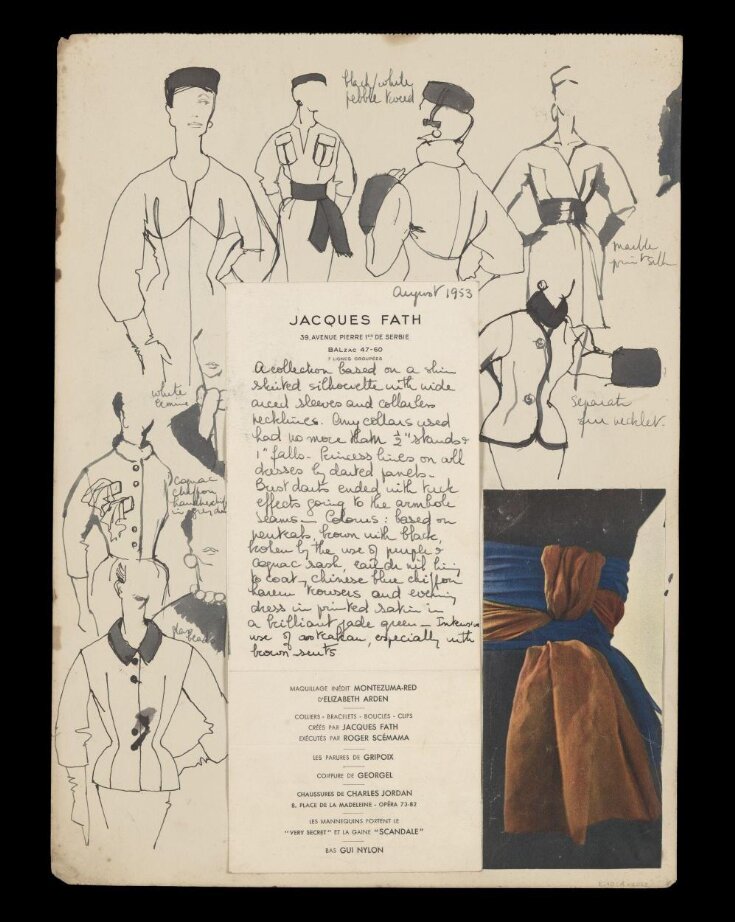 black/white
pebble tweed
marble
print silk
August 1953
JACQUES FATH
39, AVENUE PIERRE 1ER DE SERBIE
BALZAC 47-60
7 LIGNES GROUPÉES
A collection based on a slim
skirted silhouette with wide
arced sleeves and collarless
necklines. Any collars used
had no more than ½" stands &
1" falls. Princess lines on all
dresses by darted panels.
Bust darts ended with tuck
effects going to the armhole
seams – Colours: based on
neutrals, brown with black,
broken by the use of purple &
Cognac sash, eau de nil lining
to coat, chinese blue chiffon
harem trousers and evening
dress in printed satin in
a brilliant jade green – Intensive
use of astrakan, especially with
brown suits
white
ermine
Separate
fur necklet.
cognac
chiffon
handkerchief
in grey
black
MAQUILLAGE INÉDIT MONTEZUMA-RED
D'ELIZABETH ARDEN
COLLIERS - BRACELETS - BOUCLES - CLIPS
CRÉÉS PAR JACQUES FATH
EXÉCUTÉS PAR ROGER SCÉMAMA
LES PARURES DE GRIPOIX
COIFFURE DE GEORGEL
CHAUSSURES DE CHARLES JORDAN
8, PLACE DE LA MADELEINE - OPÉRA 73-82
LES MANNEQUINS PORTENT LE
"VERY SECRET" ET LA GAINE "SCANDALE"
BAS GUI NYLON